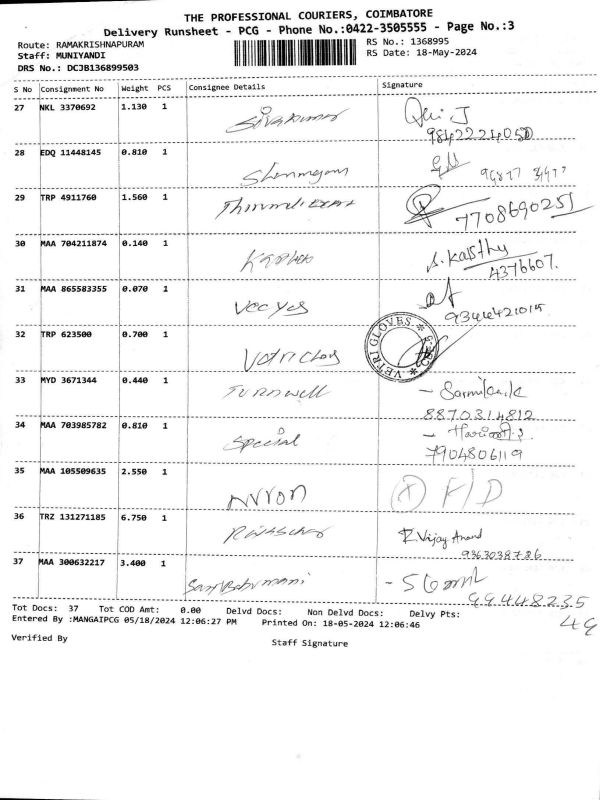 THE PROFESSIONAL COURIERS, COIMBATORE
Delivery Runsheet - PCG - Phone No.:0422-3505555 - Page No.:3
Route: RAMAKRISHNAPURAM
Staff: MUNIYANDI
DRS No.: DCJB136899503
RS No.: 1368995
RS Date: 18-May-2024
S No Consignment No Weight PCS Consignee Details Signature
27 NKL 3370692 1.130 1 Sivakumar
9842224050
28 EDQ 11448145 0.810 1 Shanmugam
29 TRP 4911760 1.560 1
7708690251
30 MAA 704211874 0.140 1 S. Kasthy
4376607.
31 MAA 865583355 0.070 1
9344421015
32 TRP 623500 0.700 1 VETRI GLOVES
33 MYD 3671344 0.440 1 Turnwell
8870314812
34 MAA 703985782 0.810 1 Special
7904806119
35 MAA 105509635 2.550 1 F/D
36 TRZ 131271185 6.750 1 R. Vijay Anand
9363038786
37 MAA 300632217 3.400 1
99448235
49
Tot Docs: 37 Tot COD Amt: 0.00 Delvd Docs: Non Delvd Docs: Delvy Pts:
Entered By :MANGAIPCG 05/18/2024 12:06:27 PM Printed On: 18-05-2024 12:06:46
Verified By Staff Signature